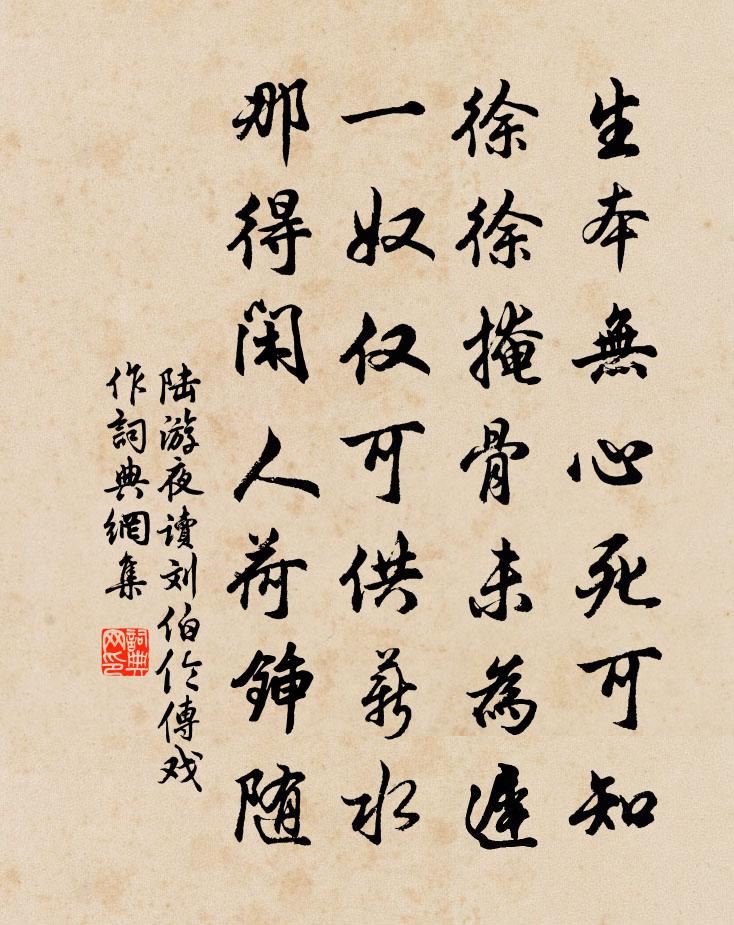 生本無心死可知
徐徐掩骨未為遲
一奴仅可供薪水
那得闲人荷鍤随
陆游夜读刘伯伶傳戏
作詞典網集
詞典网印